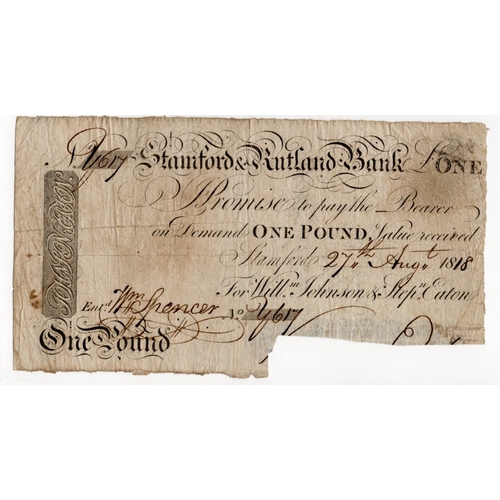 Stamford & Rutland Bank £ONE
I Promise to pay the Bearer
on Demand ONE POUND, Value received
Stamford 27th Augt. 1818
For Willm. Johnson & Stepn. Eaton
Entd. Wm Spencer No
One Pound